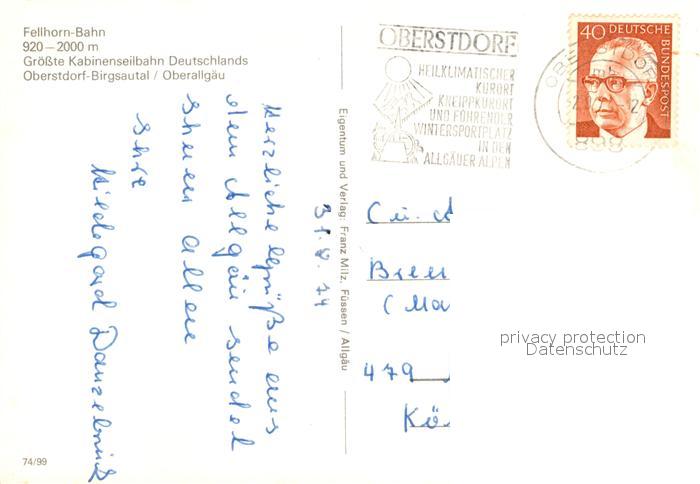 Fellhorn-Bahn
920 – 2000 m
Größte Kabinenseilbahn Deutschlands
Oberstdorf-Birgsautal / Oberallgäu
OBERSTDORF
HEILKLIMATISCHER
KURORT
KNEIPPKURORT
UND FÜHRENDER
WINTERSPORTPLATZ
IN DEN
ALLGÄUER ALPEN
40 DEUTSCHE BUNDESPOST
Herzliche Grüße aus
dem Allgäu sendet
Ihnen allen
Ihre
Hildegard
31.8.74
Eigentum und Verlag: Franz Milz, Füssen / Allgäu
479
Kö
privacy protection
Datenschutz
74/99